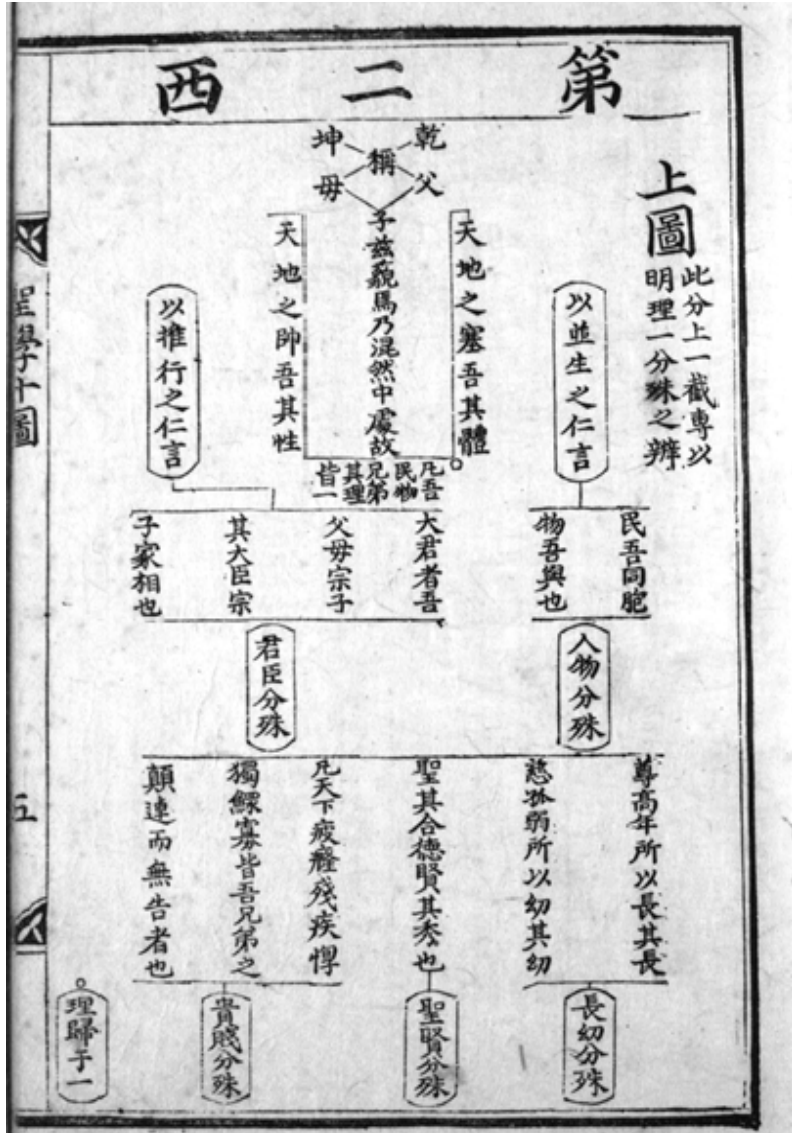 第二西
上圖
此分上一截專以
明理一分殊之辨
乾
父
稱
坤
母
天地之塞吾其體
子茲藐焉乃混然中處故
天地之帥吾其性
以並生之仁言
以推行之仁言
凡吾
民物
兄弟
其理
皆一
民吾同胞
物吾與也
大君者吾
父母宗子
其大臣宗
子家相也
人物分殊
君臣分殊
尊高年所以長其長
慈孤弱所以幼其幼
聖其合德賢其秀也
凡天下疲癃殘疾惸
獨鰥寡皆吾兄弟之
顛連而無告者也
長幼分殊
聖賢分殊
貴賤分殊
理歸于一
聖學十圖
五